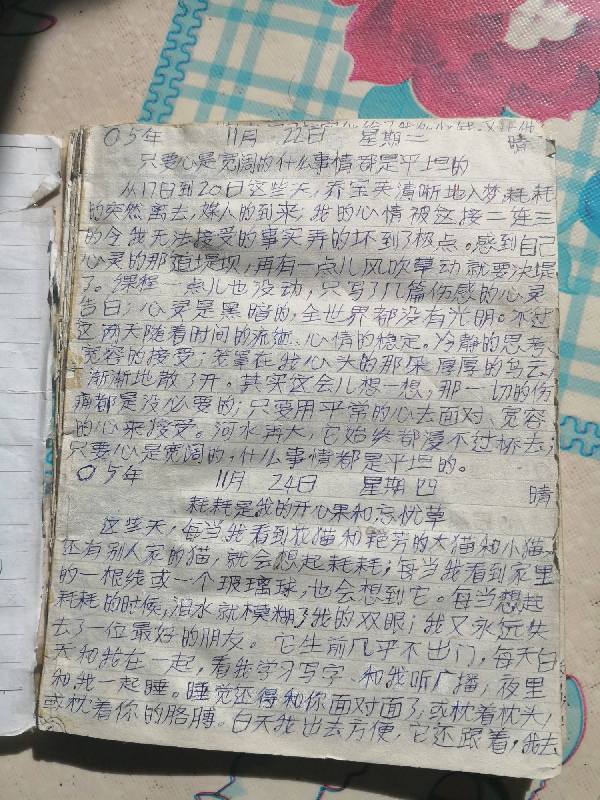 05年 11月 22日 星期二 晴
只要心是宽阔的什么事情都是平坦的
从17日到20日这些天，乔宝英清晰地入梦，耗耗
的突然离去，媒人的到来，我的心情被这接二连三
的令我无法接受的事实弄的坏到了极点。感到自己
心灵的那道堤坝，再有一点儿风吹草动就要决堤
了。课程一点儿也没动，只写了几篇伤感的心灵
告白；心灵是黑暗的，全世界都没有光明。不过
这两天随着时间的流逝、心情的稳定。冷静的思考
宽容的接受；笼罩在我心头的那朵厚厚的乌云
渐渐地散了开。其实这会儿想一想，那一切的伤
痛都是没必要的；只要用平常的心去面对、宽容
的心来接受。河水再大，它始终都漫不过桥去；
只要心是宽阔的，什么事情都是平坦的。
05年 11月 24日 星期四 晴
耗耗是我的开心果和忘忧草
这些天，每当我看到花猫和艳芳的大猫和小猫
还有别人家的猫，就会想起耗耗；每当我看到家里
的一根线或一个玻璃球，也会想到它。每当想起
耗耗的时候，泪水就模糊了我的双眼；我又永远失
去了一位最好的朋友。它生前几乎不出门，每天白
天和我在一起，看我学习写字、和我听广播，夜里
和我一起睡。睡觉还得和你面对面了，或枕着枕头，
或枕着你的胳膊。白天我出去方便，它还跟着，我去